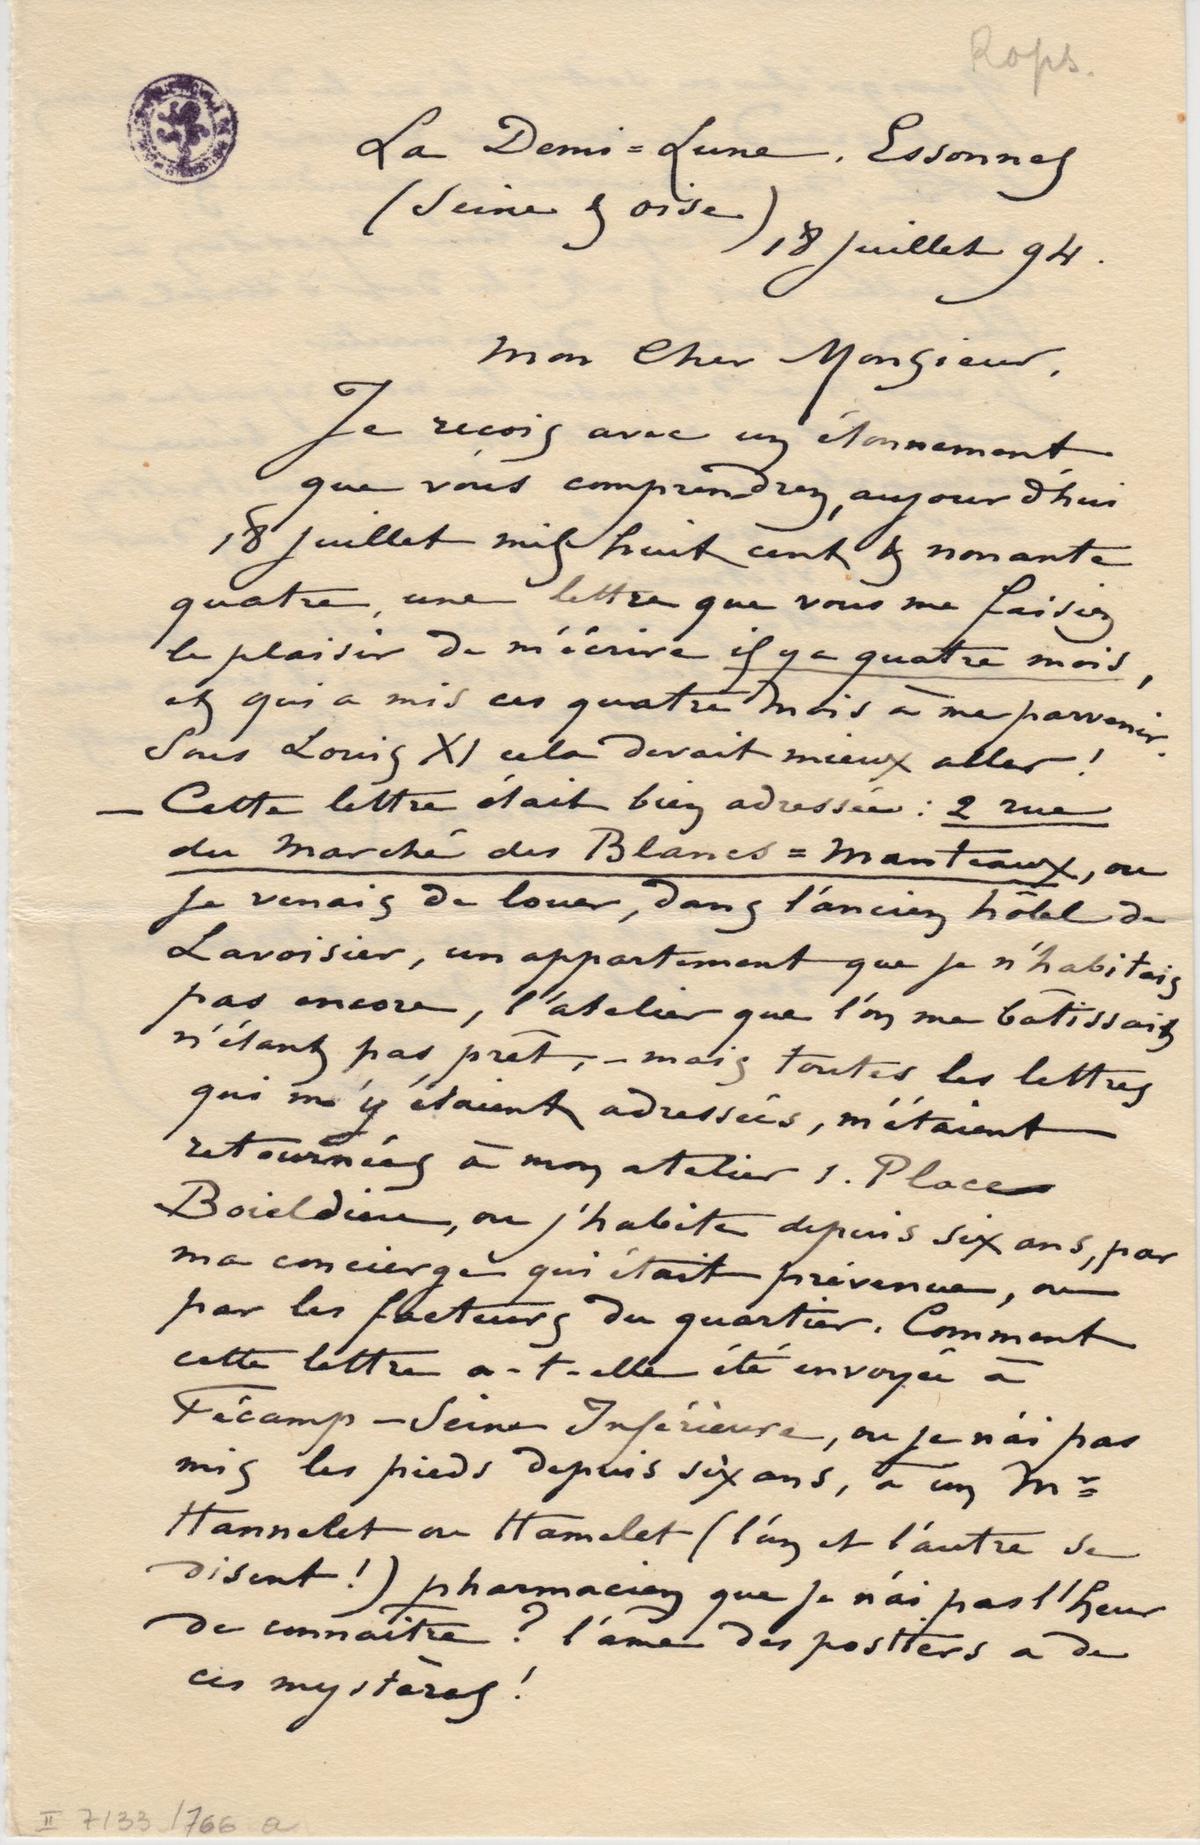 Rops.
La Demi=Lune. Essonnes
(Seine & oise)
18 Juillet 94.
Mon Cher Monsieur,
Je reçois avec un étonnement
que vous comprendrez, aujourd'hui
18 Juillet mil huit cent & nonante
quatre, une lettre que vous me faisiez
le plaisir de m'écrire il y a quatre mois,
et qui a mis ces quatre mois à me parvenir.
Sous Louis XI cela devait mieux aller!
— Cette lettre était bien adressée: 2 rue
du Marché des Blancs=Manteaux, ou
je venais de louer, dans l'ancien hôtel de
Lavoisier, un appartement que je n'habitais
pas encore, l'atelier que l'on me bâtissait
n'étant pas prêt, – mais toutes les lettres
qui m'y étaient adressées, m'étaient
retournées à mon atelier 1. Place
Boieldieu, ou j'habite depuis six ans, par
ma concierge qui était prévenue, ou
par les facteurs du quartier. Comment
cette lettre a-t-elle été envoyée à
Fécamp – Seine Inférieure, ou je n'ai pas
mis les pieds depuis six ans, à un Mr
Hannelet ou Hamelet (l'un et l'autre se
disent!) pharmacien que je n'ai pas l'heur
de connaître? l'âme des postiers a de
ces mystères!
II 7133/766 a